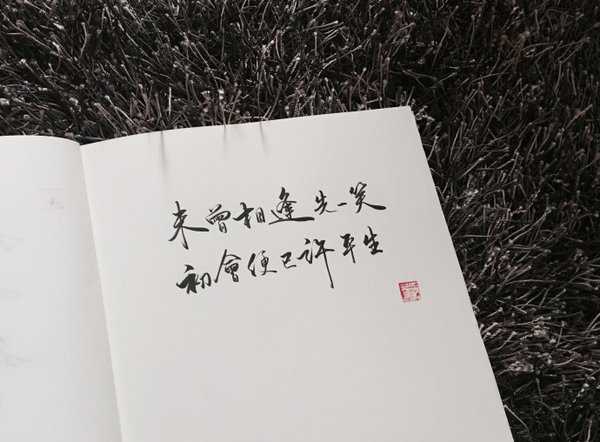 未曾相逢先一笑
初會便已許平生